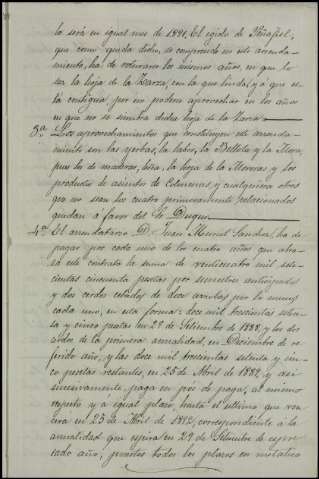 la será en igual mes de 1891. El egido de Peñafiel,
que como queda dicho, se comprende en este arrenda-
miento, ha de roturarse los mismos años, en que lo
sea la hoja de la Zarza, con la que linda, y á que es-
tá contigua, por no poderse aprovechar en los años
en que no se siembra dicha hoja de la Zarza.
3ª Los aprovechamientos que constituyen este arrenda-
miento son las yerbas, la labor, la Bellota y la Mora,
pues los de maderas, leña, la hoja de la Moreras y los
productos de asientos de Colmenas, y cualquiera otros
que no sean los cuatro primeramente relacionados
quedan á favor del Sr. Duque.
4ª El arrendatario D. Juan Manuel Sandia, ha de
pagar por cada uno de los cuatro años que abra-
za este contrato la suma de veinticuatro mil sete-
cientas cincuenta pesetas por semestres anticipados
y dos cerdos cebados de doce arrobas por lo menos
cada uno, en esta forma: doce mil trescientas seten-
ta y cinco pesetas en 29 de Setiembre de 1888, y los dos
cerdos de la primera anualidad, en Diciembre de re-
ferido año, y las doce mil trescientas setenta y cin-
co pesetas restantes, en 25 de Abril de 1889, y así
sucesivamente, paga en pos de paga, al mismo
respecto y á igual plazo, hasta el ultimo que ven-
cera en 25 de Abril de 1892, correspondiente á la
anualidad que espira en 29 de Setiembre de espre-
sado año; puestos todos los plazos en metálico